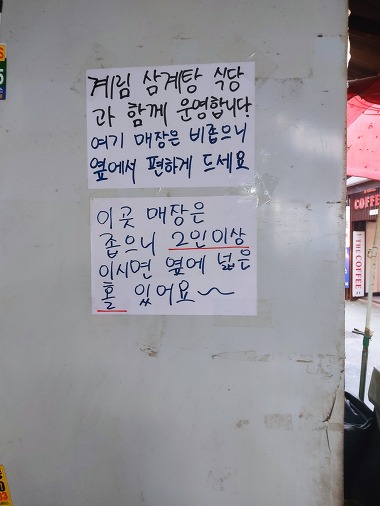 계림 삼계탕 식당
과 함께 운영합니다.
여기 매장은 비좁으니
옆에서 편하게 드세요
이곳 매장은
좁으니 2인이상
이시면 옆에 넓은
홀 있어요~
COFFEE
THE COFFEE